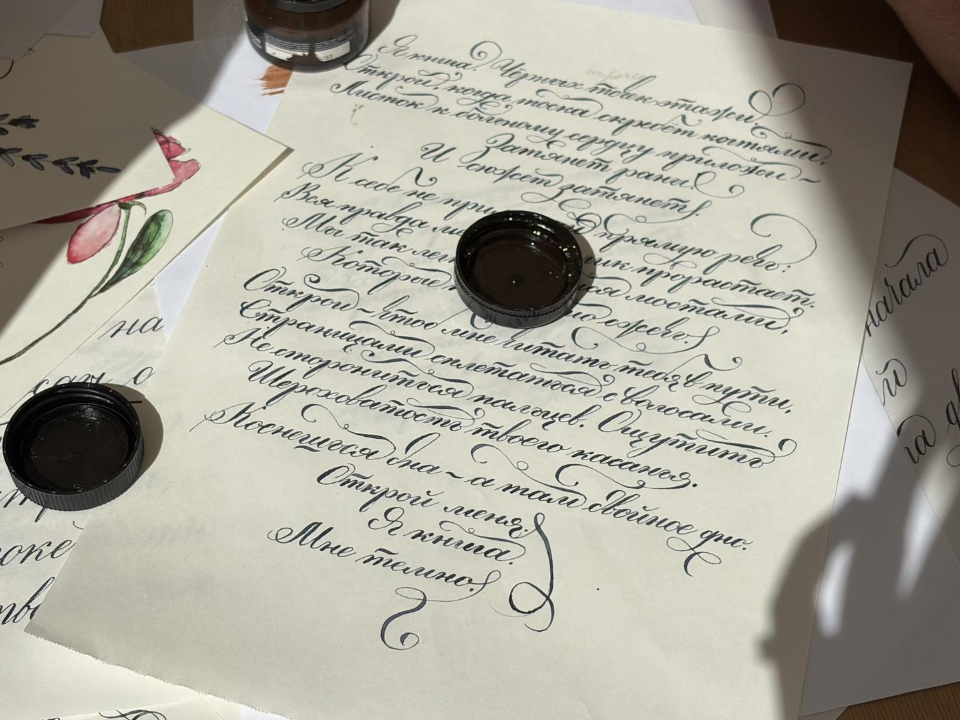 Я книга. Черных строк этажи.
Открой, когда тоска скребёт когтями,
Листок к больному сердцу приложи ~
Затянет раны.
И сюжет затянет!
К себе не прямую речь:
Вся правда прорастает.
Мы так мостами,
Которые сжечь!
Открой ~ чтоб мне читать тебя в пути,
Страницами сплетаться с волосами.
Не сторониться пальцев. Ощутить
Шероховатость твоего касанья.
Коснешься дна ~ а там двойное дно.
Открой меня.
Я книга.
Мне темно!
на
начала
й